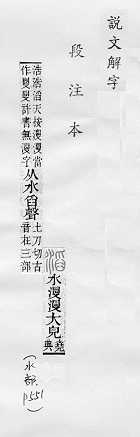 說文解字
段注本
滔 水漫漫大皃 堯典
浩浩滔天按漫漫當
作曼曼許書無漫字
从水舀聲
土刀切古
音在三部
(水部, p551)